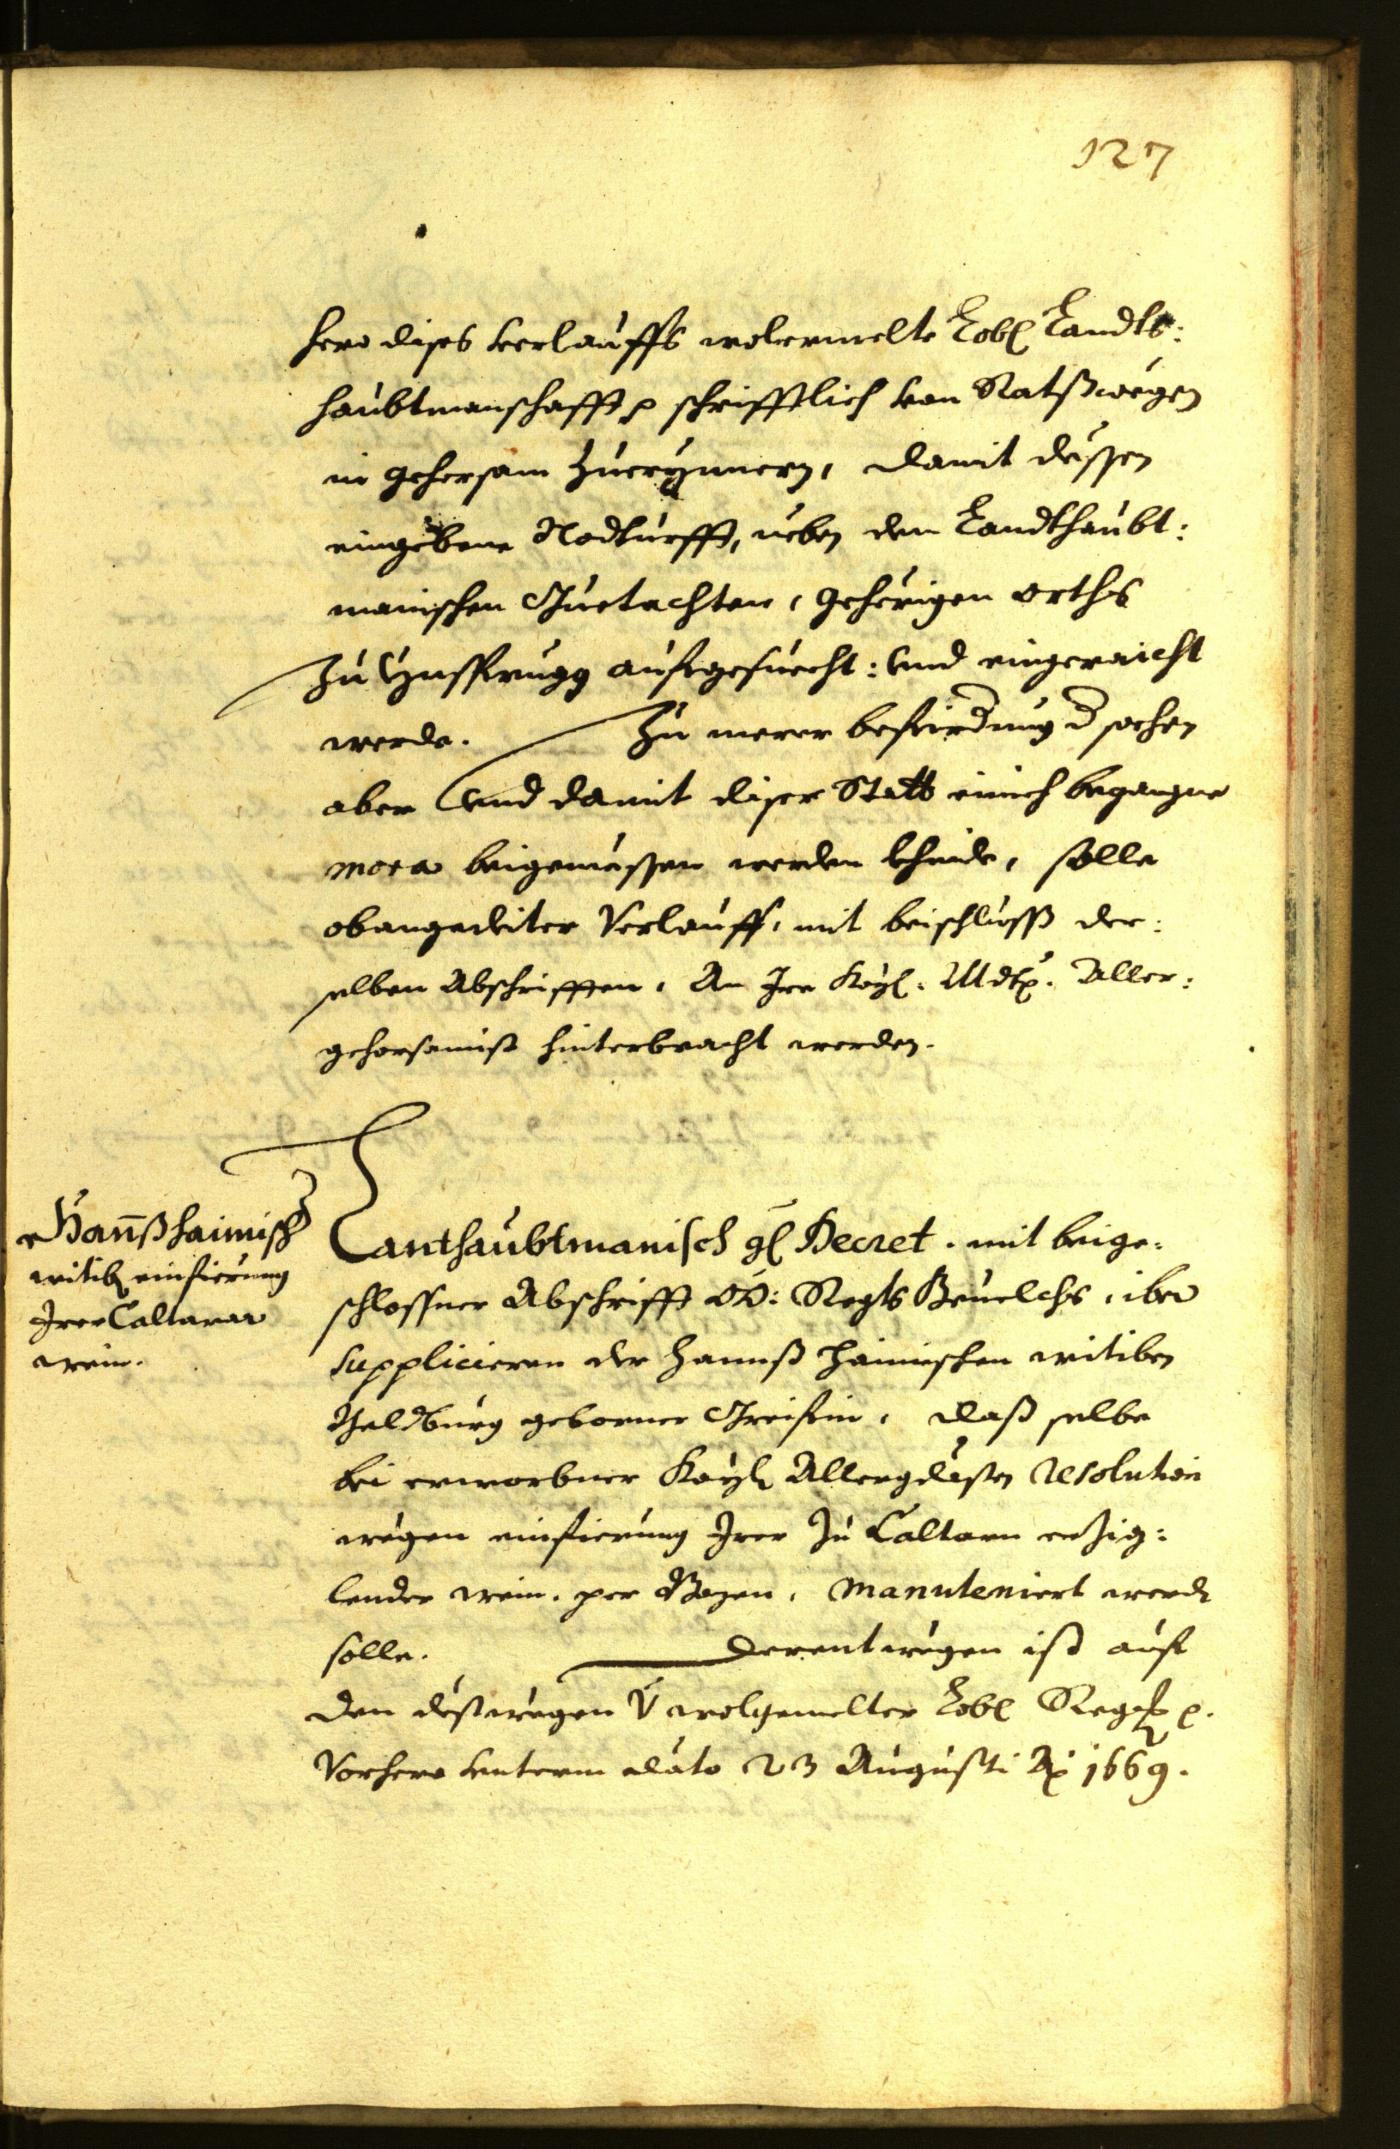 127
hero dises verlauffs wolermelte Lobl Landts:
haubtmanschafft p schrifftlich von Ratßwegen
in gehorsam zuerynnern, damit dessen
eingebene Nodturfft, neben dem Landthaubt:
manischen Guetachten, gehörigen orths
zu Ynsprugg aufgesuecht: und eingeraicht
werde. Zu merer befürdrung d sachen
aber und damit diser Statt einich begangne
mora beigemessen werden khinde, solle
obangedeiter Verlauff, mit beischluss der:
selben Abschrifften, An Ire Kayl. Mdt. Aller:
gehorsamist hinterbracht werden.
Hannßhaimisch
witib einfierung
Irer Caltarer
wein.
Lanthaubtmanisch gl Decret. mit beige:
schlossner Abschrifft OÖ: Regts Beuelchs, iber
supplicieren der Hannß haimischen witiben
geborner, daß selbe
bei erworbner Kayl Allergdisten resolution
wegen einfierung Irer zu Caltarn
lender wein, per Bozen, manuteniert werd
solle. Derentwegen ist auf
den destwegen wolgemelter Lobl Regg p.
Vorhero unterm dato 23 Augusti A 1669.